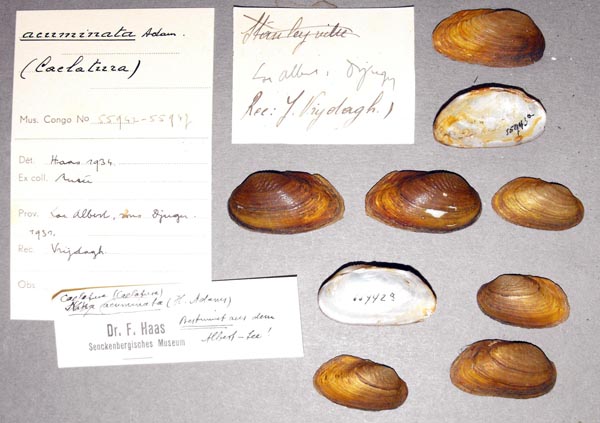 acuminata Adam.
(Caelatura)
Mus. Congo No 55942-55947
Dét. Haas 1934.
Ex coll. Musée
Prov. Lac Albert, Djugu.
1931.
Rec. Vrijdagh.
Obs
Caelatura (Caelatura)
acuminata (H. Adams)
Dr. F. Haas
Senckenbergisches Museum
Bestimmt aus dem
Albert-See!
Stanleyville
Lac Albert, Djugu
Rec: J. Vrijdagh.)
55943a